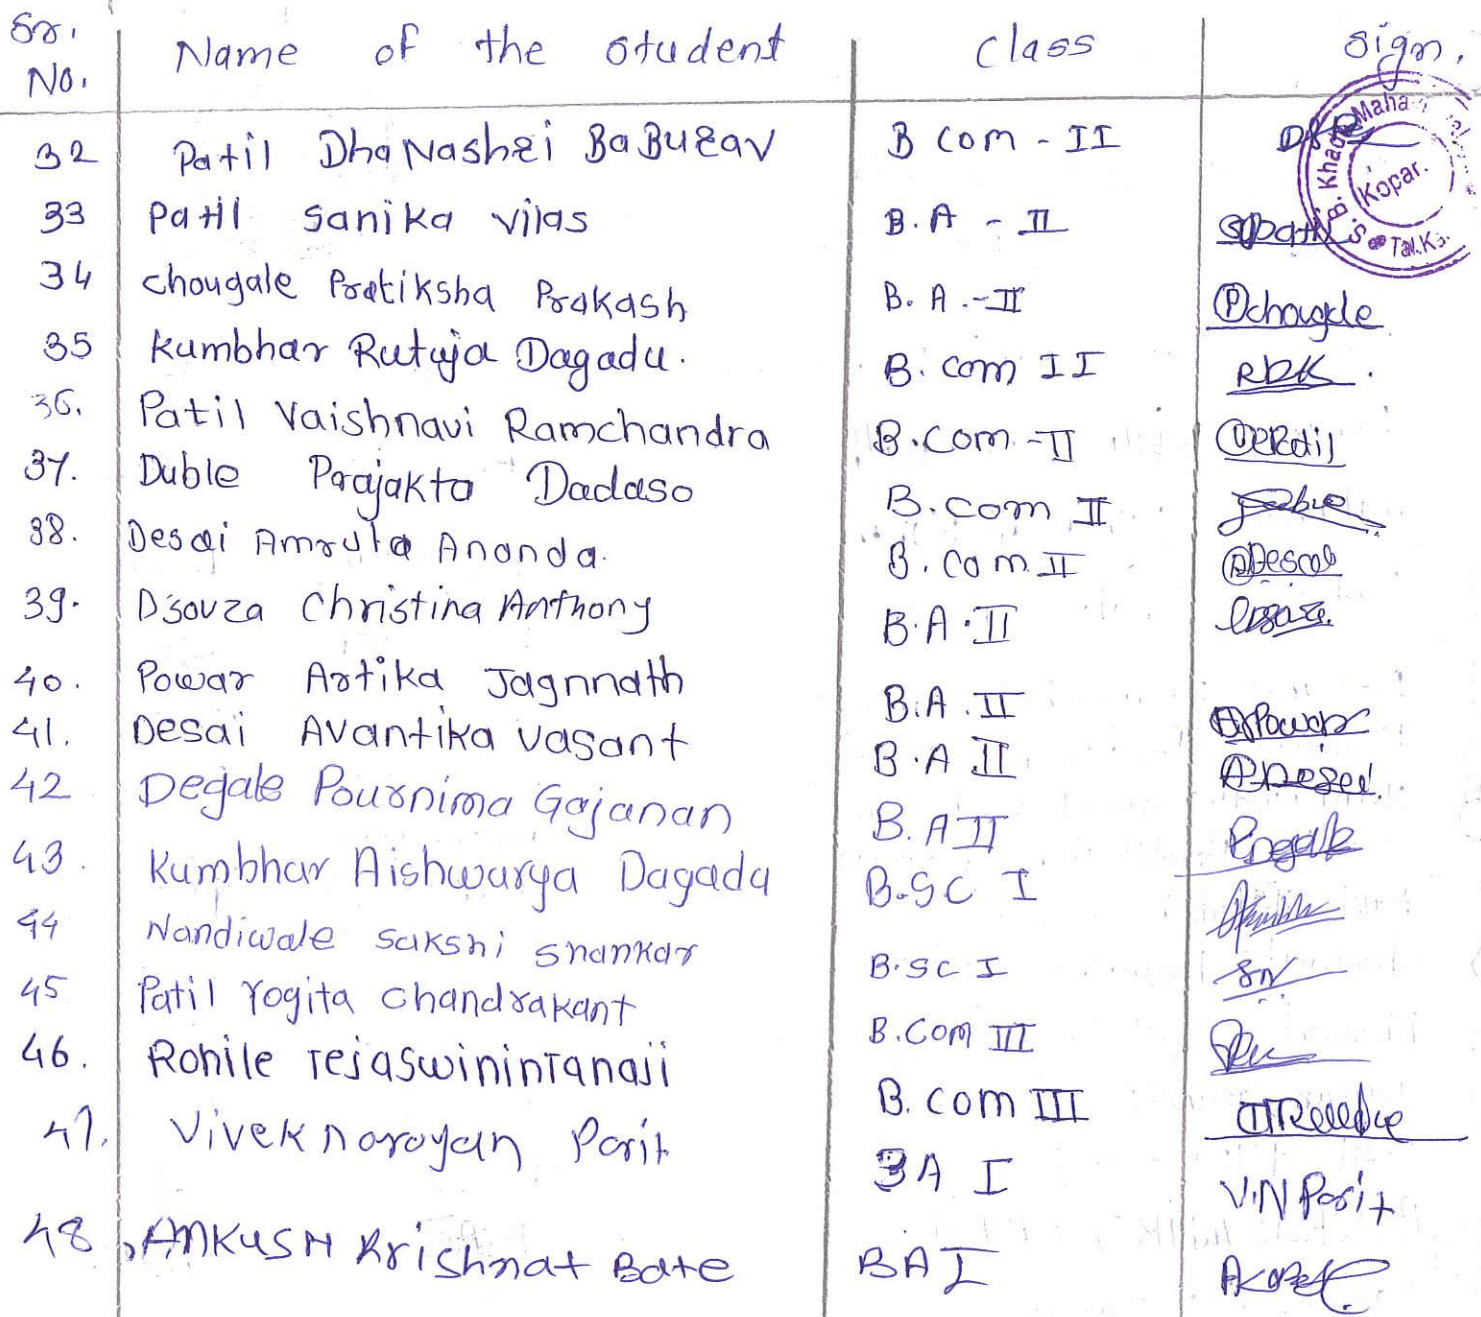 Sr. No. Name of the student Class Sign.
32 Patil DhaNashri BaBurav B com - II
33 Patil Sanika vilas B.A - II
34 chougale Pratiksha Prakash B. A.-II Pchougle
35 Kumbhar Rutuja Dagadu. B. com II RDK.
36. Patil Vaishnavi Ramchandra B.com-II
37. Duble Prajakta Dadaso B.com II
38. Desai Amruta Ananda. B. com II ADesai
39. D'souza Christina Anthony B.A.II
40. Powar Artika Jagnnath B.A.II APowar
41. Desai Avantika vasant B.A II ADesai
42 Degale Pournima Gajanan B. A II
43. Kumbhar Aishwarya Dagadu B.SC I
44 Nandiwale sakshi shankar B.SC I SN
45 Patil Yogita chandrakant B.Com III
46. Rohile TejaswininTanaji B. com III
47. Vivek narayan Parit BA I V.N Parit
48, ANKUSH Krishnat Bate BA I
Maha
B. Khade
Kopar.
Tal.K